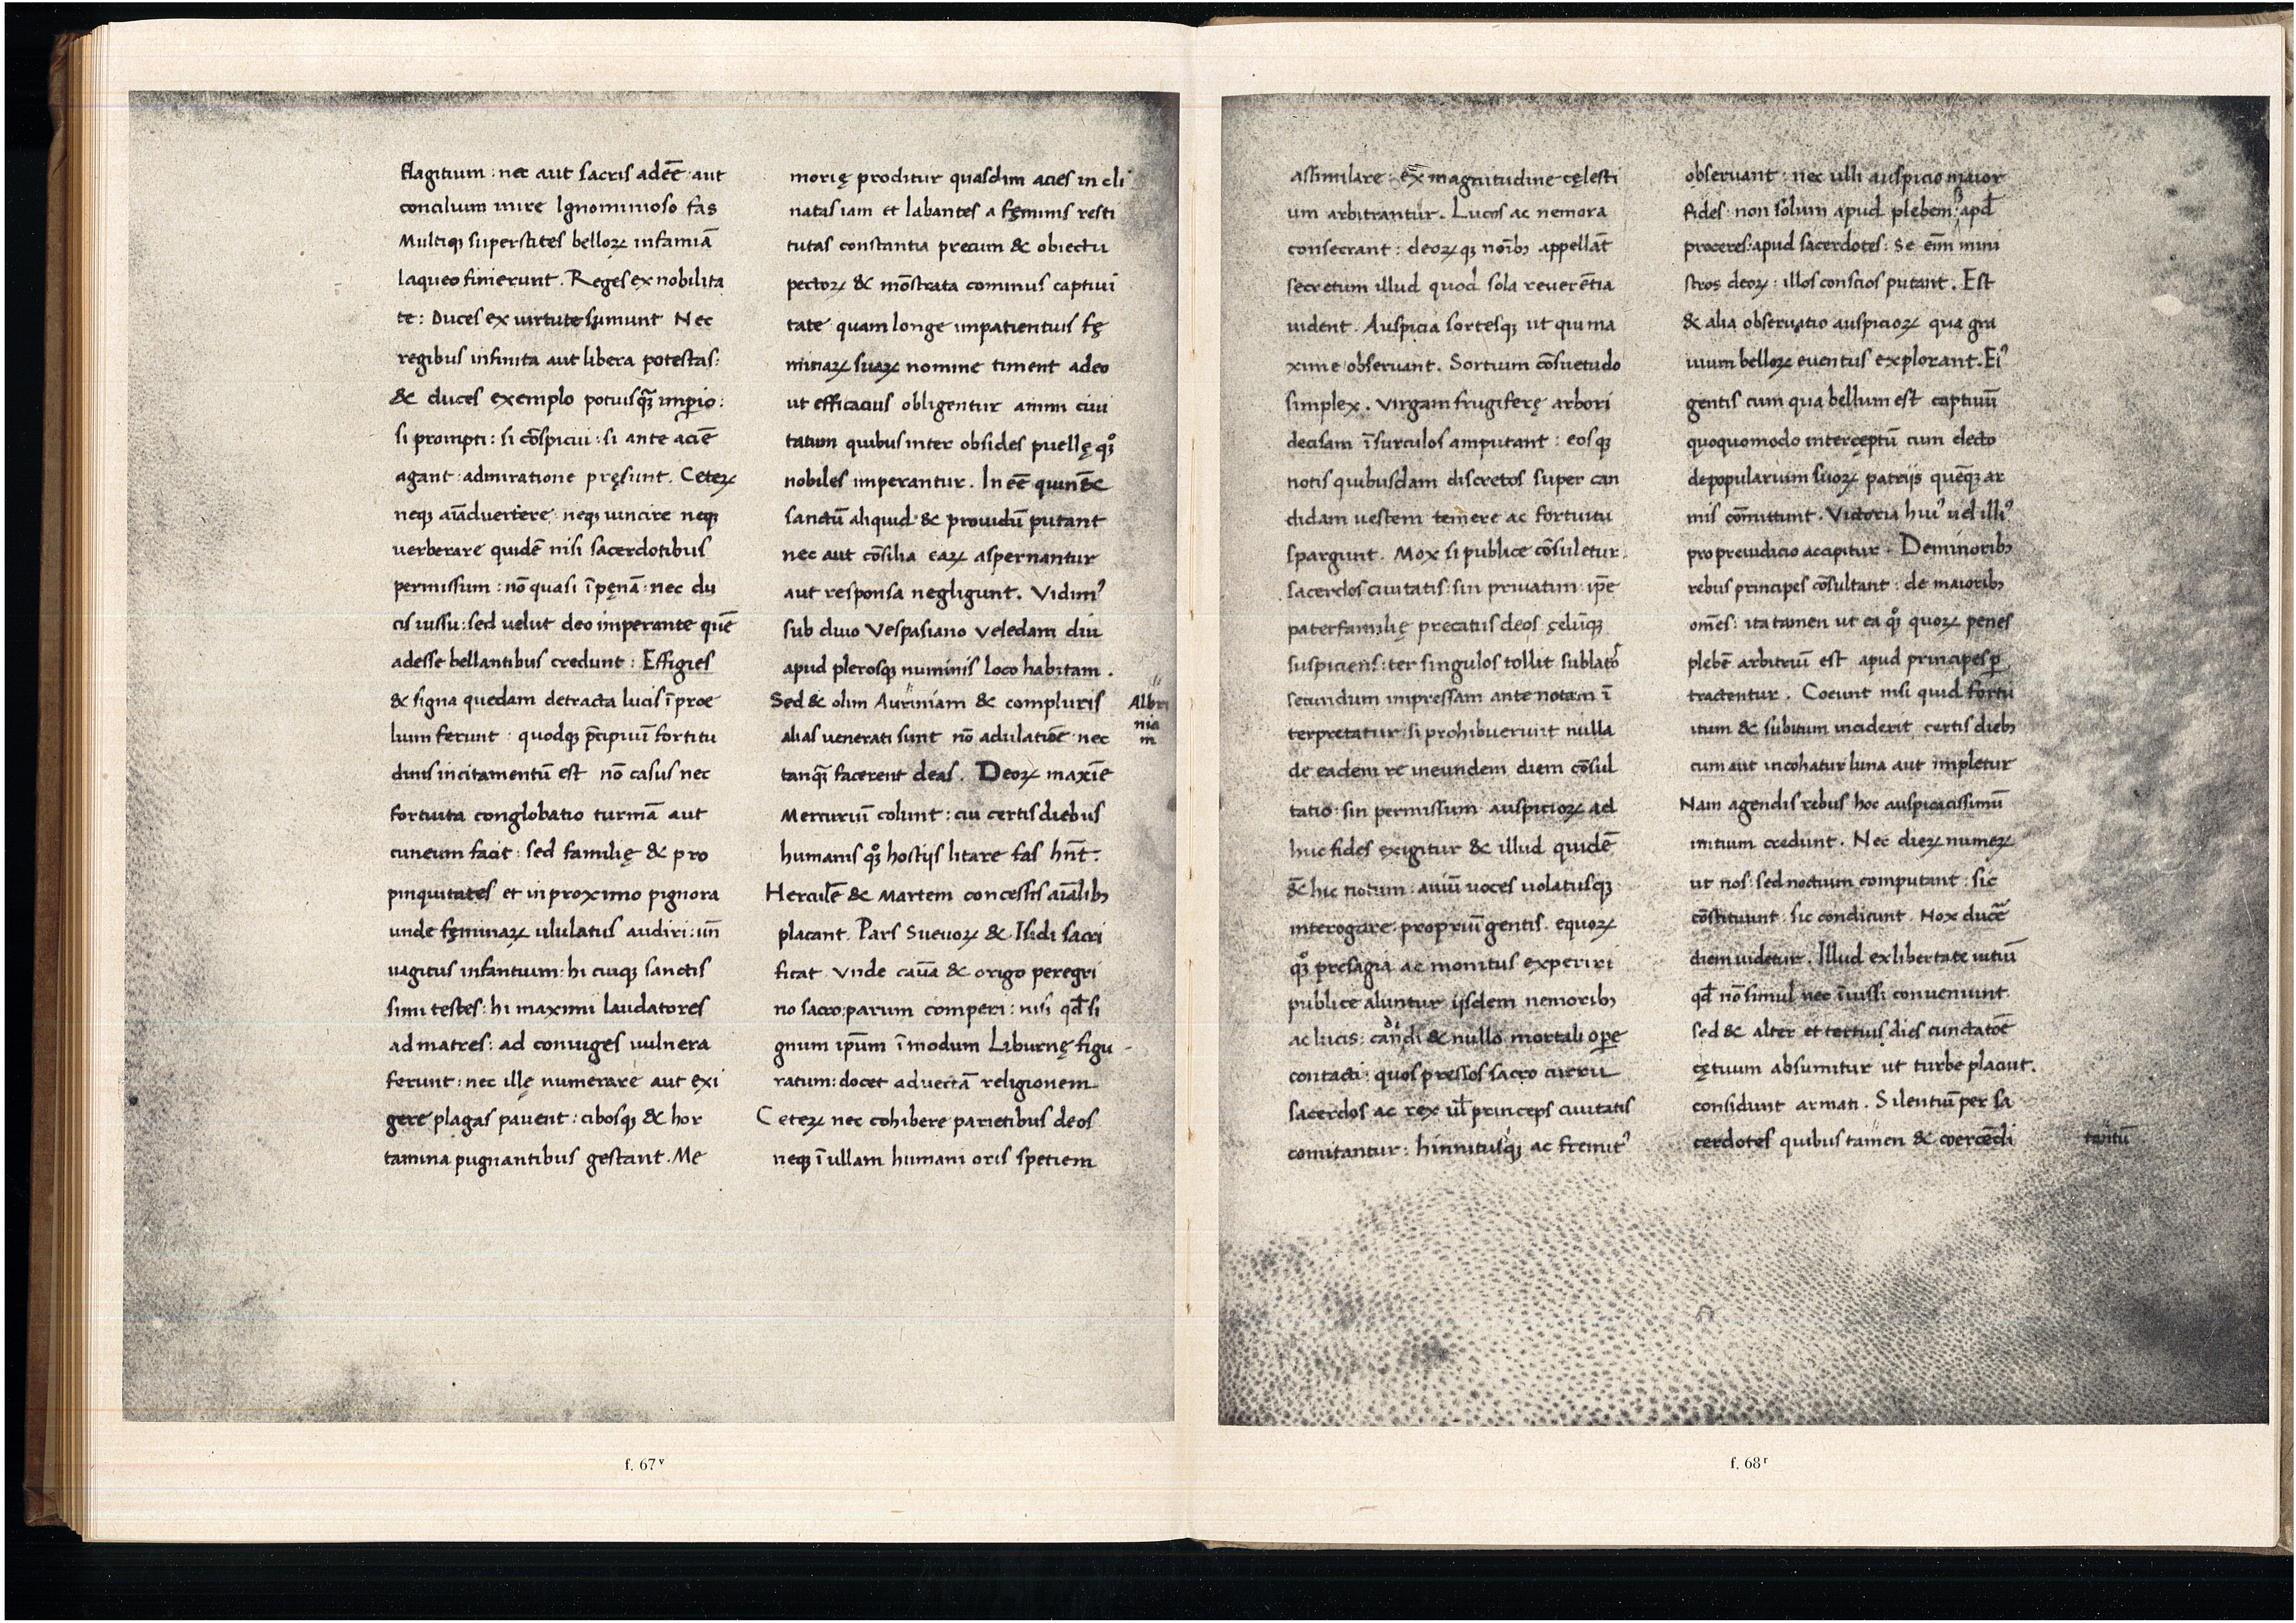 flagitium : nec aut sacris adeē aut
concilium inire Ignominioso fas
Multiqꝫ superstites belloꝝ infamiā
laqueo finierunt . Reges ex nobilita
te : Duces ex virtute sumunt Nec
regibus infinita aut libera potestas :
& duces exemplo potiusqꝫ imꝑio :
si prompti : si cōspicui : si ante aciē
agant admiratione pręsunt . Ceteꝝ
neqꝫ aīaduertere neqꝫ uincire neqꝫ
uerberare quidē nisi sacerdotibus
permissum : nō quasi ī pęnā nec du
cis iussu : sed uelut deo imperante quē
adesse bellantibus credunt : Effigies
& signa quedam detracta lucis ī proe
lium ferunt quodqꝫ p̄cipuū fortitu
dinis incitamentū est nō casus nec
fortuita conglobatio turmā aut
cuneum facit : sed familię & pro
pinquitates et in proximo pignora
unde fęminaꝝ ululatus audiri : un̄
uagitus infantium : hi cuiqꝫ sanctis
simi testes : hi maximi laudatores
ad matres : ad coniuges uulnera
ferunt : nec illę numerare aut exi
gere plagas pauent : cibosqꝫ & hor
tamina pugnantibus gestant . Me
morię proditur quasdam acies in cli
natas iam et labantes a fęminis resti
tutas constantia precum & obiectu
pectoꝝ & mōstrata cominus captiui
tate quam longe impatientius fę
minaꝝ suaꝝ nomine timent adeo
ut efficacius obligentur animi ciui
tatum quibus inter obsides puellę qͦꝫ
nobiles imperantur . In eē quin &
sanctū aliquid & prouidū putant
nec aut cōsilia eaꝝ aspernantur
aut responsa negligunt . Vidimꝰ
sub diuo Vespasiano Veledam diu
apud plerosqꝫ numinis loco habitam .
Sed & olim Auriniam & compluris
alias uenerati sunt nō adulatiōe nec
tanqꝫ facerent deas . Deoꝝ maxīe
Mercuriū colunt : cui certis diebus
humanis qͦꝫ hostijs litare fas hn̄t :
Herculē & Martem concessis aīalibꝫ
placant . Pars Sueuoꝝ & Isidi sacri
ficat Vnde cau̅a & origo peregri
no sacro : parum comperi : nisi qd̄ si
gnum ip̅um ī modum Liburnę figu
ratum : docet aduectā religionem
Ceteꝝ nec cohibere parietibus deos
neqꝫ ī ullam humani oris spetiem
Albri
nia
m
f. 67ᵛ
assimilare : ex magnitudine cęlesti
um arbitrantur . Lucos ac nemora
consecrant : deoꝝqꝫ noībꝫ appellāt
secretum illud quod sola reuerētia
uident . Auspicia sortesqꝫ ut qui ma
xime obseruant . Sortium cōsuetudo
simplex . Virgam frugiferę arbori
decisam ī surculos amputant : eosqꝫ
notis quibusdam discretos super can
didam uestem temere ac fortuitu
spargunt . Mox si publice cōsuletur
sacerdos ciuitatis : sin priuatim ip̅e
paterfamilię precatus deos cęlūqꝫ
suspiciens : ter singulos tollit sublatoˢ
secundum impressam ante notam ī
terpretatur si prohibuerunt nulla
de eadem re ineundem diem cōsul
tatio : sin permissum auspicioꝝ ad
huc fides exigitur & illud quidē
& hic notum : auiū uoces uolatusqꝫ
interogare propriū gentis . equoꝝ
qͦꝫ presagia ac monitus experiri
publice aluntur ijsdem nemoribꝫ
ac lucis : candi & nullo mortali oꝑe
contacti : quos pressos sacro curru
sacerdos ac rex ul̄ princeps ciuitatis
comitantur : hinnitusqꝫ ac fremitꝰ
obseruant : nec ulli auspicio maior
fides non solum apud plebem : apd̄
proceres : apud sacerdotes : Se eīm mini
stros deoꝝ : illos conscios putant . Est
& alia obseruatio auspicioꝝ qua gra
uium belloꝝ euentus explorant . Eiꝰ
gentis cum qua bellum est captiuū
quoquomodo interceptū cum electo
depopularium suoꝝ patrijs quēqꝫ ar
mis cōmittunt . Victoria huiꝰ uel illiꝰ
pro preiudicio accipitur . De minoribꝫ
rebus principes cōsultant : de maioribꝫ
om̅es : ita tamen ut ea qͦꝫ quoꝝ penes
plebē arbitriū est apud principes ꝑ
tractentur . Coeunt nisi quid fortu
itum & subitum inciderit certis diebꝫ
cum aut incohatur luna aut impletur
Nam agendis rebus hoc auspicatissimū
initium credunt . Nec dieꝝ numeꝝ
ut nos : sed noctium computant : sic
cōstituunt sic condicunt . Nox ducē
diem uidetur . Illud ex libertate uitiū
qd̄ nō simul nec īiussi conueniunt
sed & alter et tertius dies cunctatōē
cętuum absumitur ut turbe placuit .
considunt armati . Silentiū per sa
cerdotes quibus tamen & coercēdi
tantū
f. 68ʳ